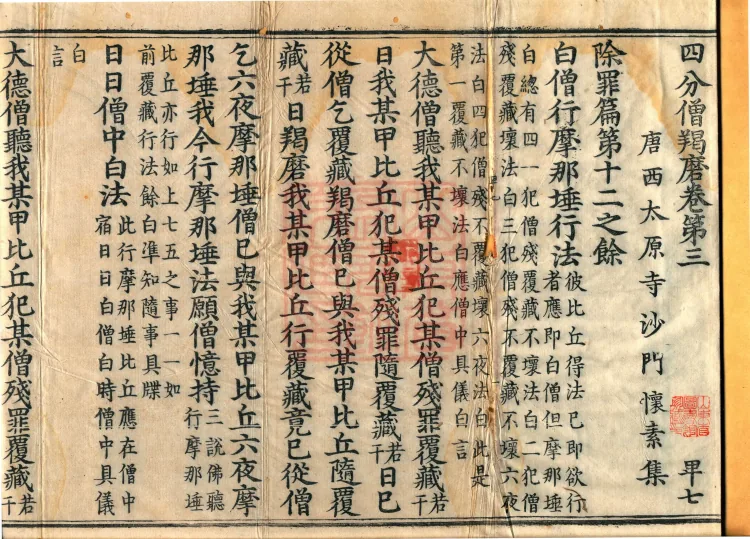 四分僧羯磨卷第三
甲七
唐西太原寺沙門懷素集
除罪篇第十二之餘
白僧行摩那埵行法彼比丘得法已即欲行
者應即白僧但摩那埵
白總有四一犯僧殘覆藏不壞法白二犯僧
殘覆藏壞法白三犯僧殘不覆藏不壞六夜
法白四犯僧殘不覆藏壞六夜法白此是
第一覆藏不壞法白應僧中具儀白言
大德僧聽我某甲比丘犯某僧殘罪覆藏若干
日我某甲比丘犯某僧殘罪隨覆藏若干日已
從僧乞覆藏羯磨僧已與我某甲比丘隨覆
藏若干日羯磨我某甲比丘行覆藏竟已從僧
乞六夜摩那埵僧已與我某甲比丘六夜摩
那埵我今行摩那埵法願僧憶持三說佛聽
行摩那埵
比丘亦行如上七五之事一一如
前覆藏行法餘白準知隨事具牒
日日僧中白法此行摩那埵比丘應在僧中
宿日日白僧白時僧中具儀
白
言
大德僧聽我某甲比丘犯某僧殘罪覆藏若干